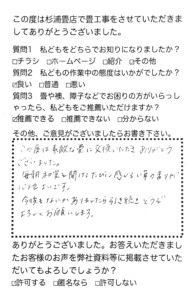 この度は杉浦畳店で畳工事をさせていただきま
してありがとうございました。
質問1 私どもをどちらでお知りになりましたか?
□チラシ □ホームページ ☑紹介 □その他
質問2 私どもの作業中の態度はいかがでしたか?
☑良い □普通 □悪い
質問3 畳や襖、障子などでお困りの方がいらっし
ゃったら、私どもをご推薦いただけますか?
☑推薦できる □推薦できない □分からない
その他、ご意見がございましたらお書き下さい。
この度は素敵な畳に交換いただき ありがとう
ございました。
毎朝
今後も
よろしくお願いします。
ありがとうございました。お答えいただきまし
たお客様のお声を弊社資料等に掲載させていた
だいてもよろしでしょうか?
□許可する ☑匿名なら □許可しない